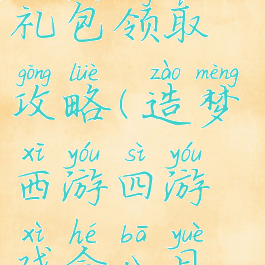 礼包领取
gōng lüè zào mèng
攻略(造梦
xī yóu sì yóu
西游四游
xì hé bā yuè
戏合八月